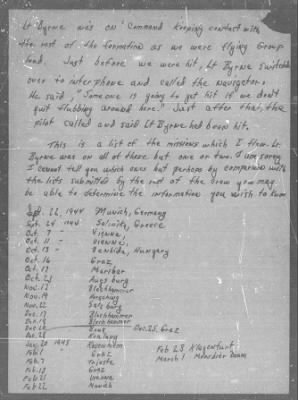 Lt Byrne was on Command keeping contact with
the rest of the formation as we were flying Group
lead. Just before we were hit, Lt Byrne switched
over to interphone and called the navigator.
He said, "Someone is going to get hit if we don't
quit flubbing around here." Just after that, the
pilot called and said Lt Byrne had been hit.
This is a list of the missions which I flew. Lt
Byrne was on all of these but one or two. I am sorry
I cannot tell you which ones but perhaps by comparison with
the lists submitted by the rest of the crew you may
be able to determine the information you wish to know
Sept. 22, 1944 Munich, Germany
Sept. 24 1944 Salinika, Greece
Oct 7 - Vienna,
Oct. 11 - Vienna,
Oct 13 - Hungary
Oct. 16 Graz
Oct. 17 Maribor
Oct. 23 Augsburg
Nov. 12 Blechhammer
Nov. 19
Nov. 22 Salzburg
Dec. 17 Blechhammer
Dec. 18 Blechhammer
Dec. 25, Graz
Jan. 20 1945 Rosenheim
Feb 1 Graz
Feb 7 Trieste
Feb. 13 Graz
Feb 21 Vienna
Feb 22
Feb 23 Klagenfurt
March 1 Moosbierbaum